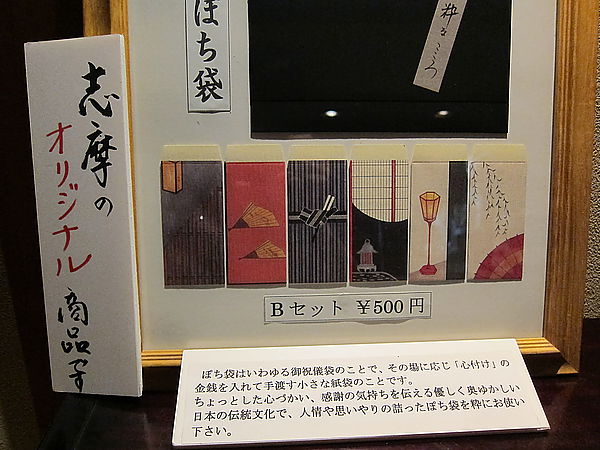 ぽち袋
粋なこころ
志摩の
オリジナル
商品です
Bセット ￥500円
ぽち袋はいわゆる御祝儀袋のことで、その場に応じ「心付け」の
金銭を入れて手渡す小さな紙袋のことです。
ちょっとした心づかい、感謝の気持ちを伝える優しく奥ゆかしい
日本の伝統文化で、人情や思いやりの詰ったぽち袋を粋にお使い
下さい。